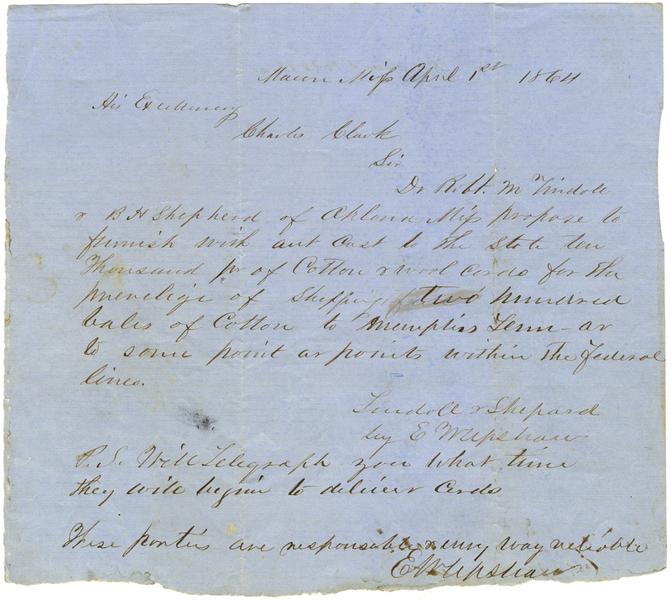 Macon Miss April 1st 1864
His Excellency
Charles Clark
Sir
Dr R. H. M Tindoll
& B H Shepherd of Okolona Miss propose to
furnish with out Cost to the State ten
Thousand pr of Cotton & wool cards for the
privelige of Shipping two hundred
bales of Cotton to Memphis Tenn - or
to some point or points within the Federal
lines.
Tindoll & Shepard
by E W Upshaw
P. S. Will Telegraph you what time
they will begin to deliver Cards
These parties are responsable & every way reliable
E W Upshaw